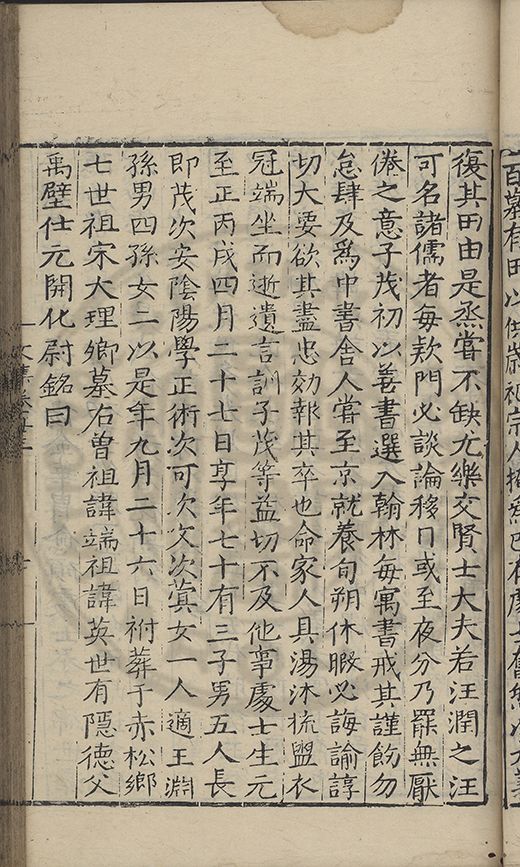 復其田由是烝嘗不缺尤樂交賢士大夫若汪潤之汪
可名諸儒者每欵門必談論移日或至夜分乃罷無厭
倦之意子茂初以善書選入翰林每寓書戒其謹飭勿
怠肆及爲中書舍人嘗至京就養旬朔休暇必誨諭諄
切大要欲其盡忠効報其卒也命家人具湯沐梳盥衣
冠端坐而逝遺言訓子茂等益切不及他事處士生元
至正丙戌四月二十七日享年七十有三子男五人長
即茂次安陰陽學正術次可次文次蓂女一人適王淵
孫男四孫女二以是年九月二十六日祔葬于赤松鄉
七世祖宋大理卿墓右曾祖諱端祖諱英世有隱德父
禹璧仕元開化尉銘曰